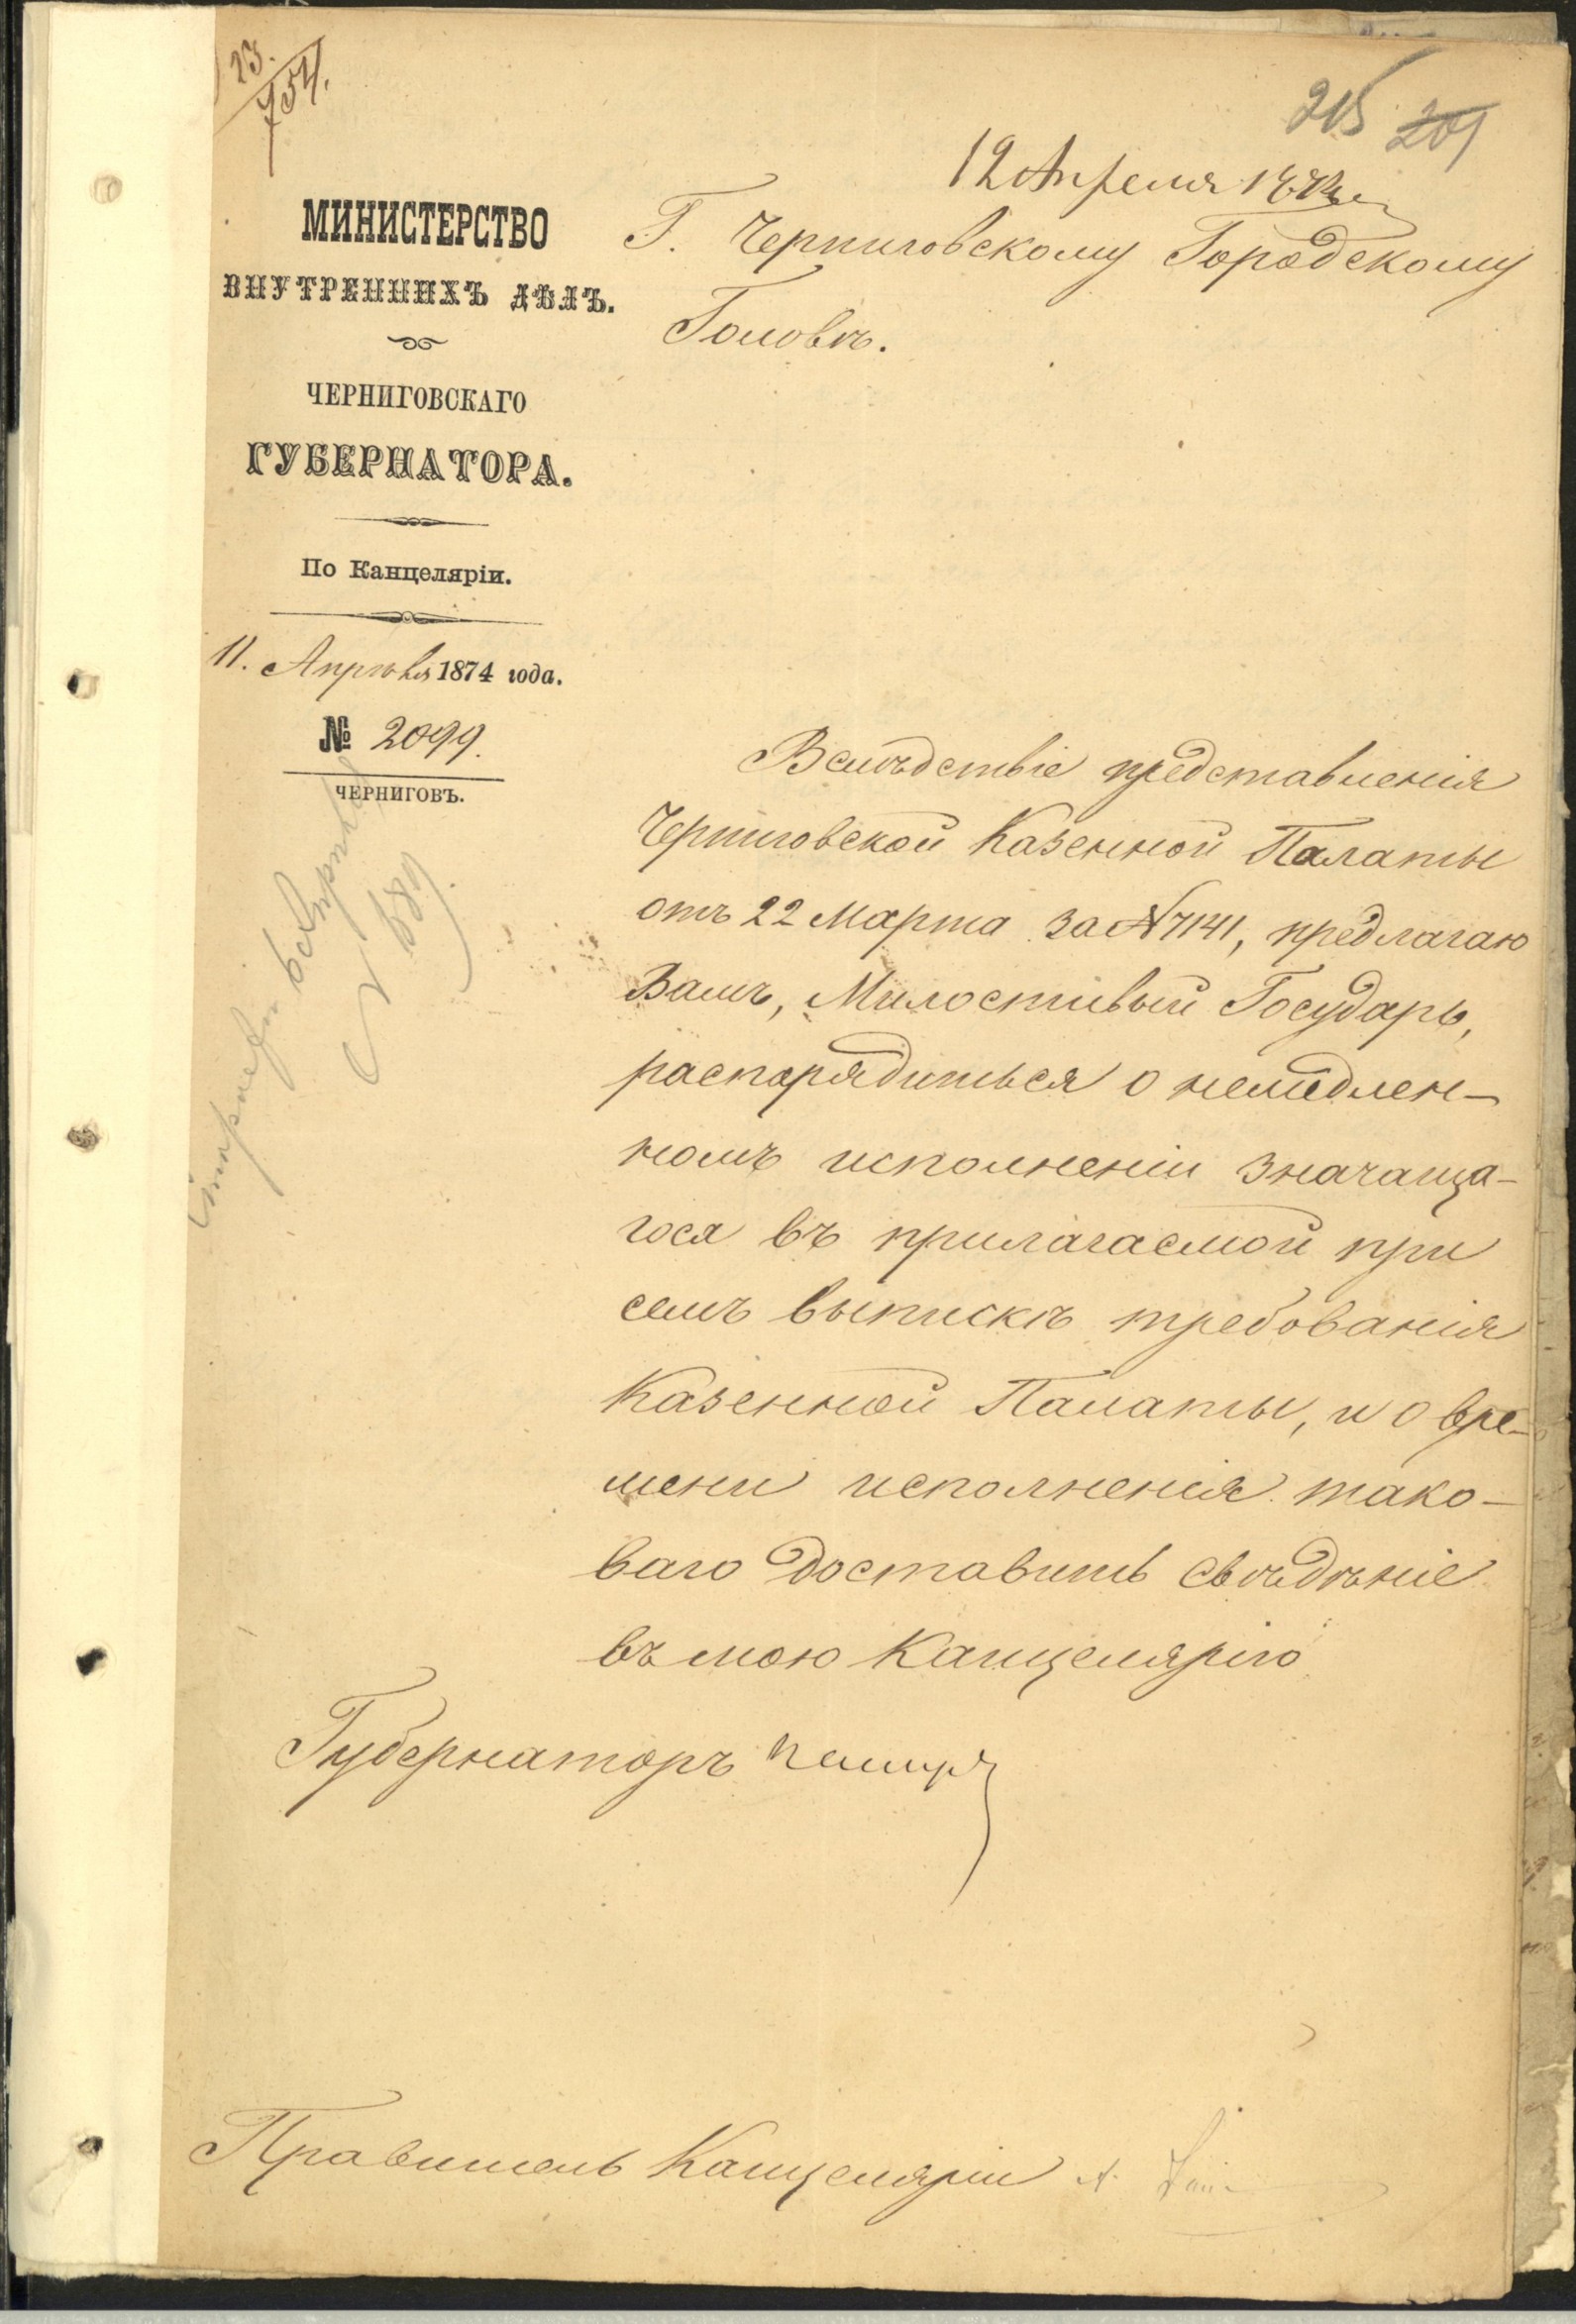 23.
754.
215 209
12 Апреля 1874
МИНИСТЕРСТВО
ВНУТРЕННИХЪ ДѢЛЪ.
ЧЕРНИГОВСКАГО
ГУБЕРНАТОРА.
По Канцеляріи.
11. Апрѣля 1874 года.
№ 2099.
ЧЕРНИГОВЪ.
Г. Черниговскому Городскому
Головѣ.
Вслѣдствіе представленія
Черниговской Казенной Палаты
отъ 22 Марта за № 7141, предлагаю
Вамъ, Милостивый Государь,
распорядиться о немедлен-
номъ исполненіи значаща-
гося въ прилагаемой при
семъ выпискѣ требованія
Казенной Палаты, и о вре-
мени исполненія тако-
ваго доставить свѣдѣніе
въ мою Канцелярію
Губернаторъ
Правитель Канцеляріи А.